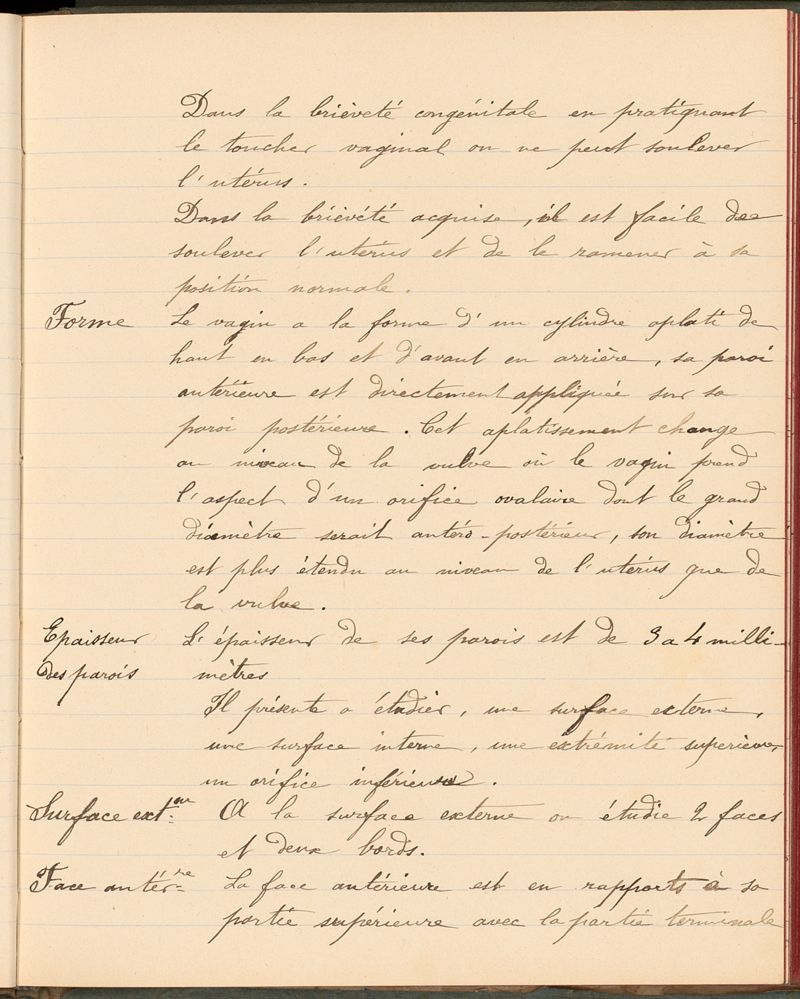 Dans la brièveté congénitale en pratiquant
le toucher vaginal on ne peut soulever
l'utérus.
Dans la brièveté acquise, il est facile de
soulever l'utérus et de le ramener à sa
position normale.
Forme Le vagin a la forme d'un cylindre aplati de
haut en bas et d'avant en arrière, sa paroi
antérieure est directement appliquée sur sa
paroi postérieure. Cet aplatissement change
au niveau de la vulve où le vagin prend
l'aspect d'un orifice ovalaire dont le grand
diamètre serait antéro-postérieur, son diamètre
est plus étendu au niveau de l'utérus que de
la vulve.
Epaisseur L'épaisseur de ses parois est de 3 a 4 milli-
des parois mètres
Il présente a étudier, une surface externe,
une surface interne, une extrémité superieure
un orifice inférieur.
Surface ext.ne A la surface externe on étudie 2 faces
et deux bords.
Face antér.re La face antérieure est en rapports à sa
partie supérieure avec la partie terminale